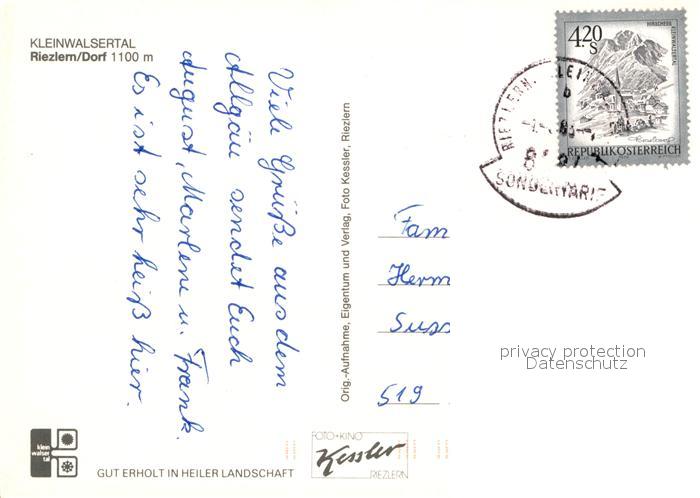 KLEINWALSERTAL
Riezlern/Dorf 1100 m
Viele Grüße aus dem
Allgäu sendet Euch
August, Marlene u. Frank.
Es ist sehr heiß hier.
Orig.-Aufnahme, Eigentum und Verlag, Foto Kessler, Riezlern
HIRSCHEGG
KLEINWALSERTAL
4.20
S
REPUBLIK ÖSTERREICH
RIEZLERN, KLEIN
b
SONDERTARIF
Fam
Herm
Suss
519
privacy protection
Datenschutz
klein
walser
tal
GUT ERHOLT IN HEILER LANDSCHAFT
FOTO+KINO
Kessler
RIEZLERN